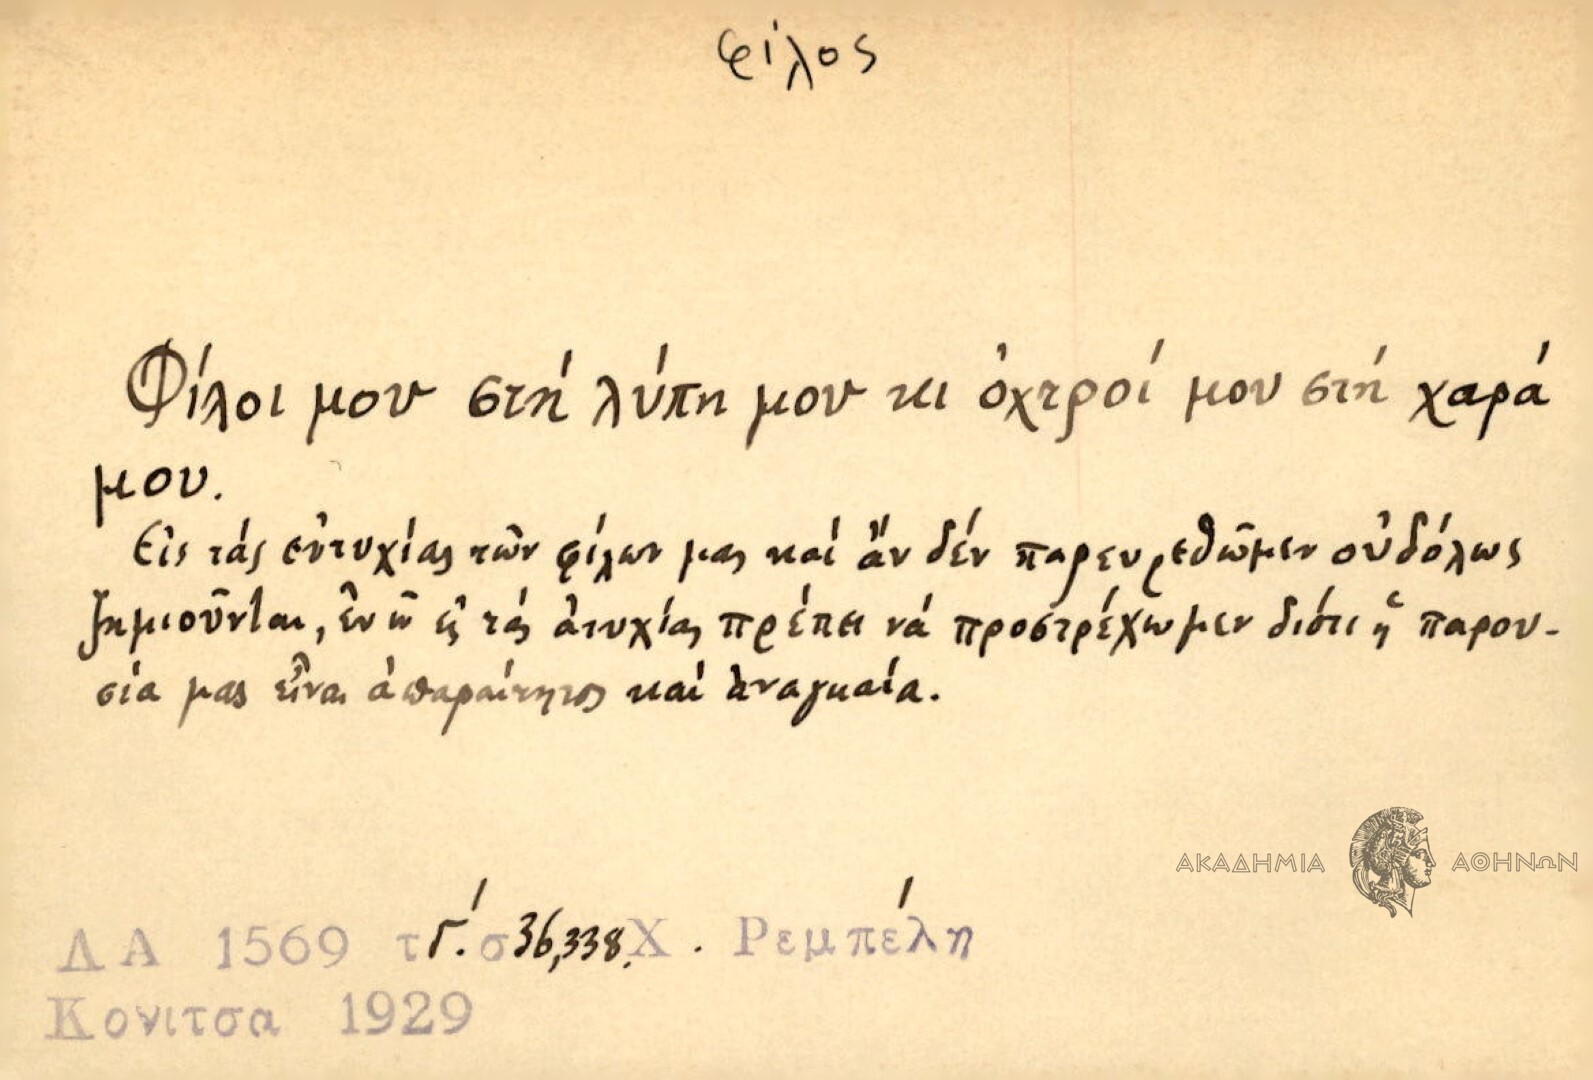 φίλος
Φίλοι μου στή λύπη μου κι ὀχτροί μου στή χαρά
μου.
Εἰς τάς εὐτυχίας τῶν φίλων μας καί ἄν δέν παρευρεθῶμεν οὐδόλως
ζημιοῦνται, ἐν ᾧ εἰς τάς ἀτυχίας πρέπει νά προστρέχωμεν διότι ἡ παρου-
σία μας εἶναι ἀπαραίτητος καί ἀναγκαία.
ΑΚΑΔΗΜΙΑ ΑΘΗΝΩΝ
ΛΑ 1569 τ Γ΄. σ 36,338. Χ. Ρεμπέλη
Κονιτσα 1929